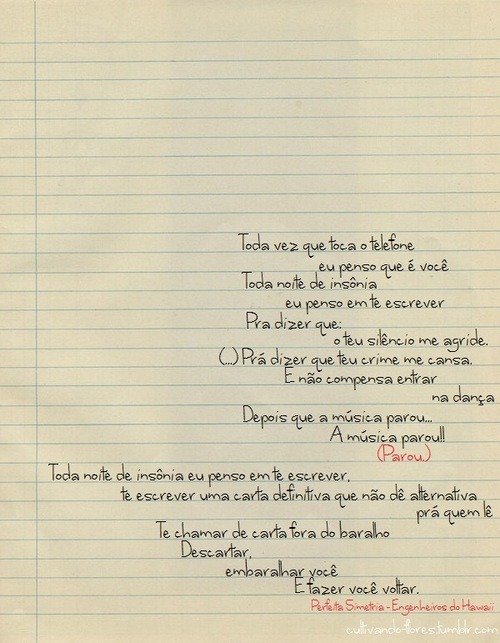 Toda vez que toca o telefone
eu penso que é você
Toda noite de insônia
eu penso em te escrever
Pra dizer que:
o teu silêncio me agride.
(...) Prá dizer que teu crime me cansa.
E não compensa entrar
na dança
Depois que a música parou...
A música parou!!
(Parou.)
Toda noite de insônia eu penso em te escrever,
te escrever uma carta definitiva que não dê alternativa
prá quem lê
Te chamar de carta fora do baralho
Descartar,
embaralhar você
E fazer você voltar.
Perfeita Simetria - Engenheiros do Hawaii
cultivando-flores.tumblr.com